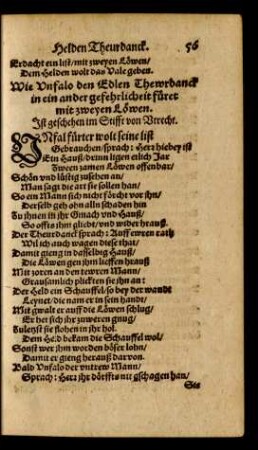 Helden Theurdanck. 56
Erdacht ein list/ mit zweyen Löwen/
Dem Helden wolt das Vale geben.
Wie Vnfalo den Edlen Thewrdanck
in ein ander gefehrlicheit füret
mit zweyen Löwen.
Ist geschehen im Stifft von Vtrecht.
VNfal fürter wolt seine list
Gebrauchen/ sprach: Herr hiebey ist
Ein Hauß/ drinn ligen etlich Jar
Zween zamen Löwen offenbar/
Schön vnd lüstig zusehen an/
Man sagt die art sie sollen han/
So em Mann sich nicht förcht vor jhn/
Derselb geh ohn alln schaden hin
Zu jhnen in jhr Gmach vnd Hauß/
So offts jhm glicht/ vnd wider herauß.
Der Theurdanck sprach: Auff ewren rath
Wil ich auch wagen diese that/
Damit gieng in dasselbig Hauß/
Die Löwen gen jhm lieffen herauß
Mit zoren an den tewren Mann/
Grausamlich plickten sie jhn an:
Der Held ein Schauffel/ so bey der wandt
Leynet/ die nam er in sein handt/
Mit gwalt er auff die Löwen schlug/
Er het sich jhr zuweren gnug/
Zuletzt sie flohen in jhr hol.
Dem Held bekam die Schauffel wol/
Sonst wer jhm worden böser lohn/
Damit er gieng herauß darvon.
Bald Vnfalo der vntrew Mann/
Sprach: Herr jhr dörfft nit gschagen han/
Sie